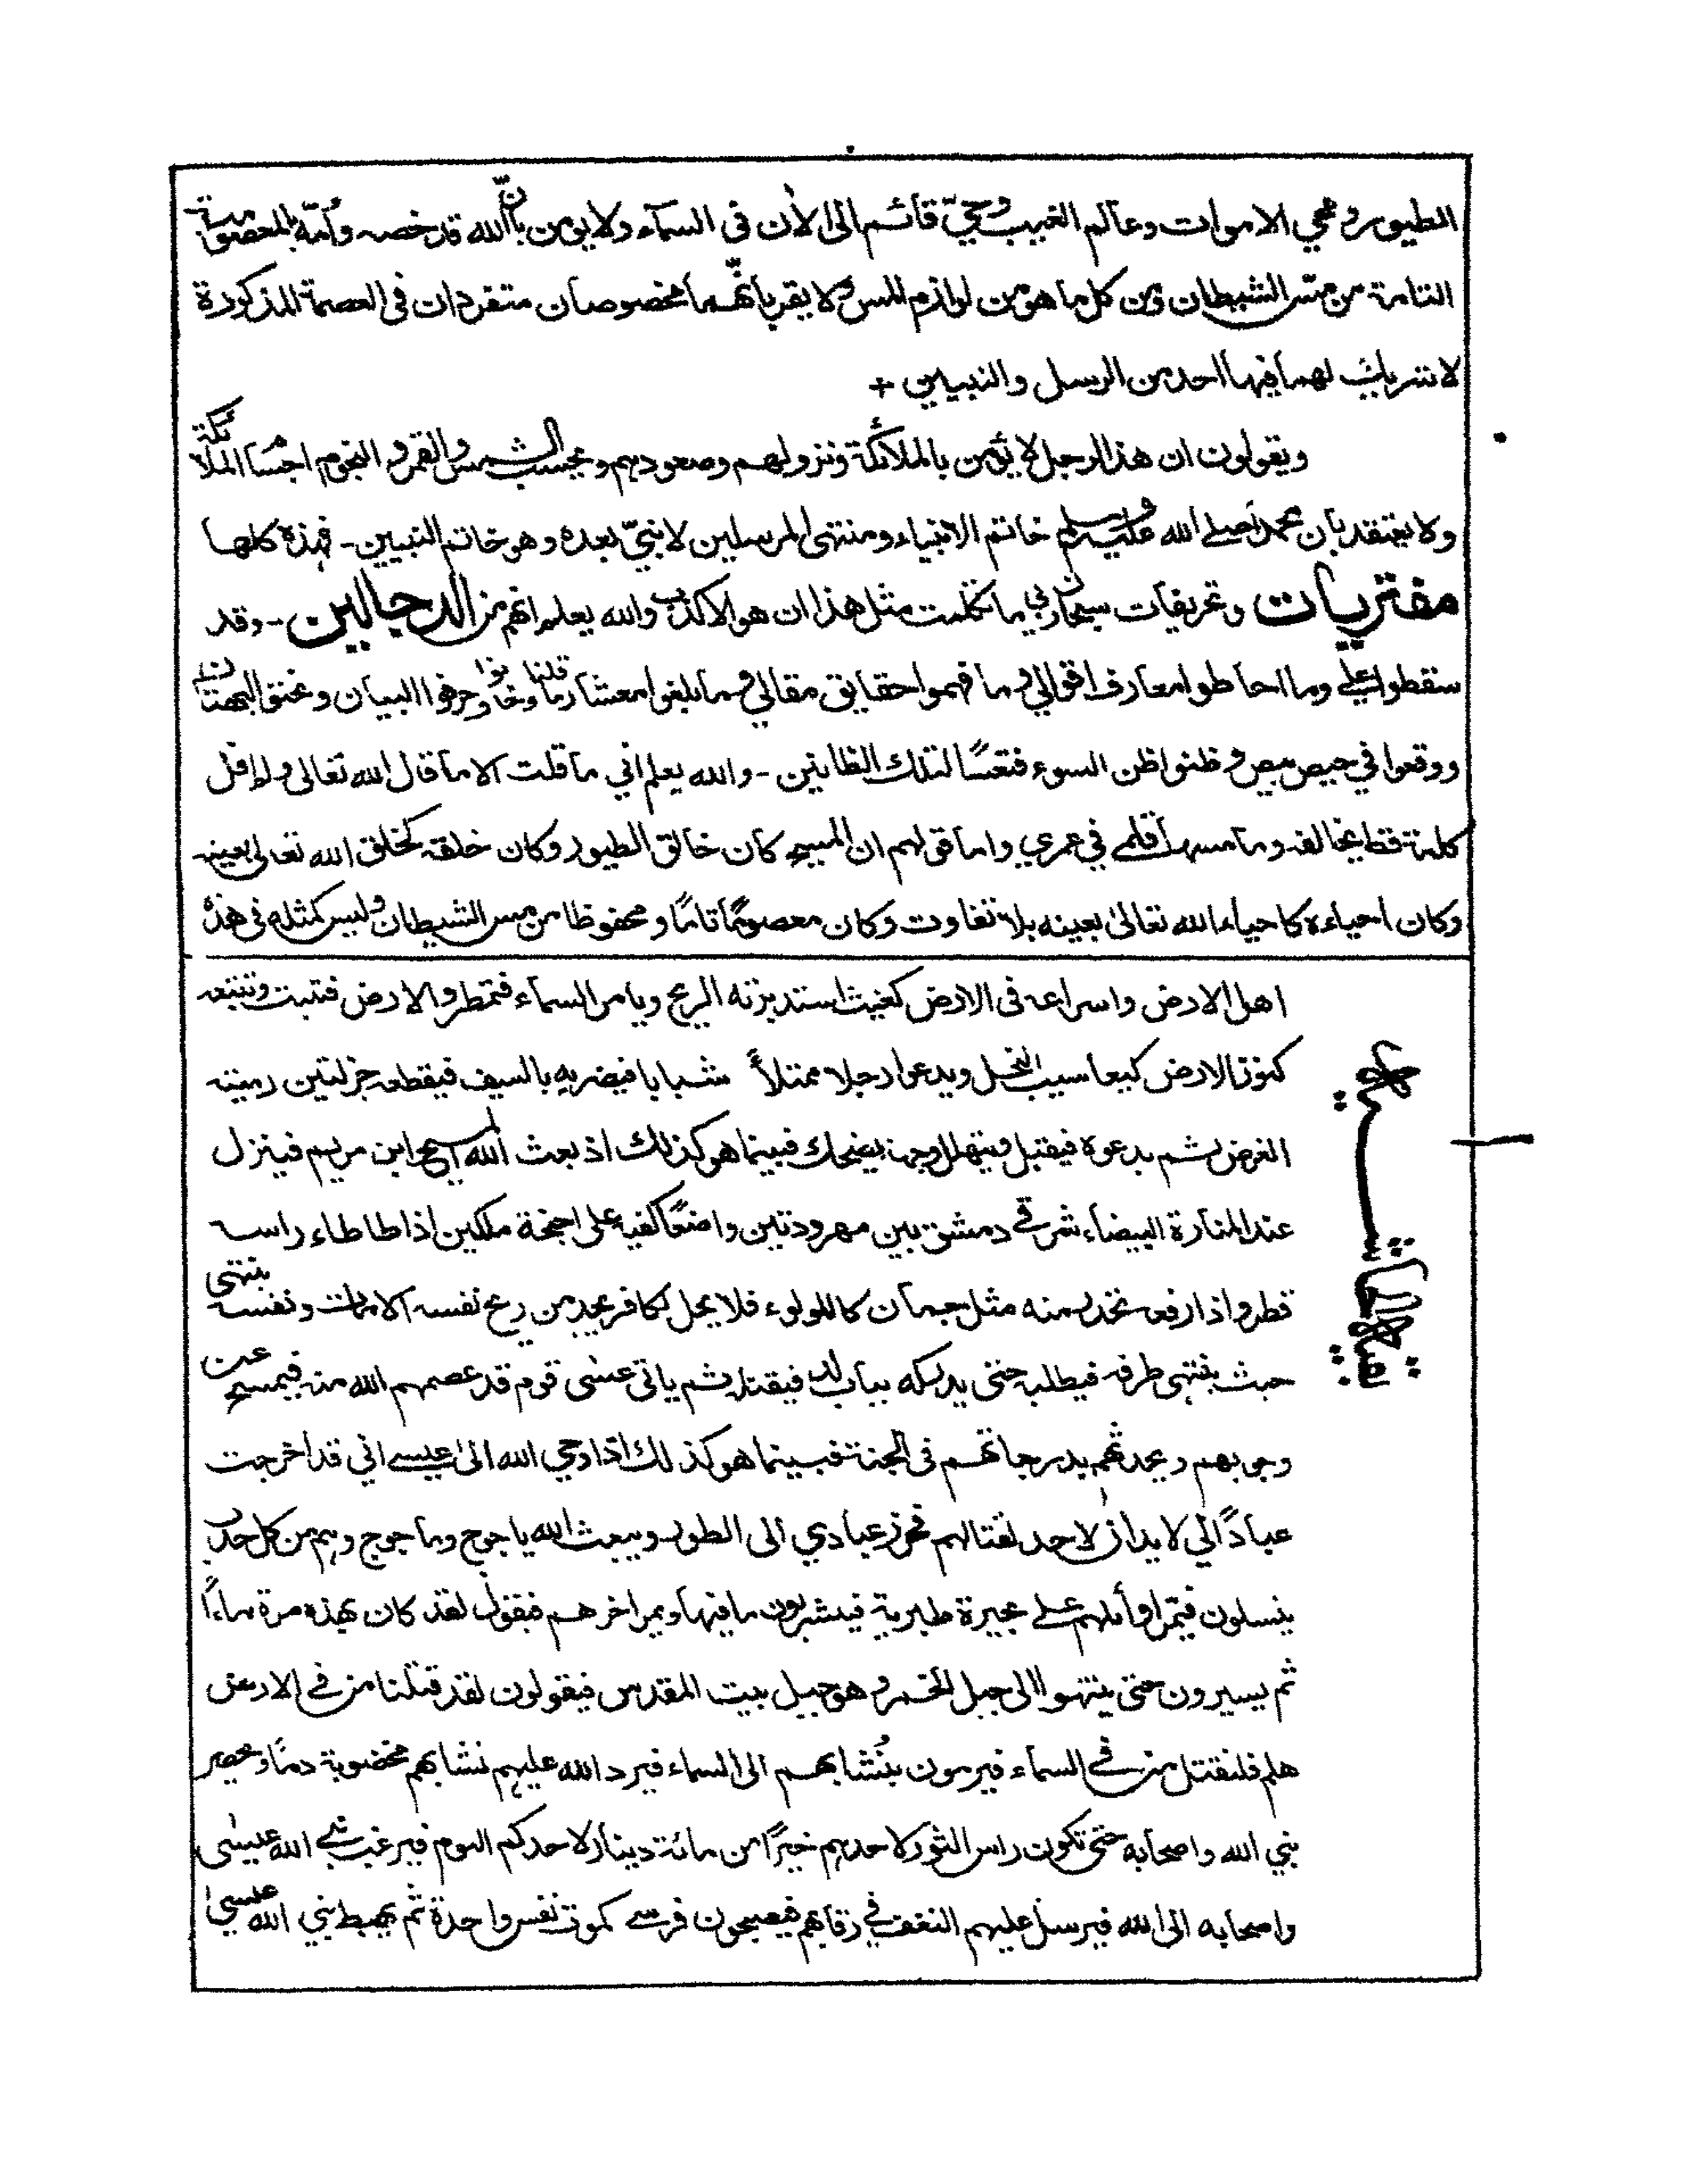 الطيور ومحي الاموات وعالم الغيب وحيّ قائم الى الأن فى السمآء ولا يومن بانّ الله قد خصه وأُمّه بالمعصومية
التامة من مسّ الشيطان ومن كل ما هو من لوازم المس ولا يقر بانّهما مخصوصان متفردان فى العصمة المذكورة
لا شريك لهما فيها احد من الرسل والنبيين +
ويقولون ان هذا الرجل لا يؤمن بالملائكة ونزولهم وصعودهم ويحسب الشمس والقمر والنجوم اجسام الملائكة
ولا يعتقد بان محمدًا صلے الله عليه وسلم خاتم الانبياء ومنتهى المرسلين لا نبيّ بعده وهو خاتم النبيين - فهذه كلها
مفتريات وتحريفات سبحان ربي ما تكلمت مثل هذا ان هو الا كذب والله يعلم انهم من الدجالين - وقد
سقطوا علے وما احاطوا معارف اقوالي وما فهموا حقايق مقالي وما بلغوا معشار ما قلنا وخانوا وحرفوا البيان ونحتوا البهتان
ووقعوا في حيص بيص وظنوا ظن السوء فتعسًا لتلك الظانين - والله يعلم اني ما قلت الا ما قال الله تعالى ولم اقل
كلمة قط يخالفه وما مسها قلمے في عمري واما قولهم ان المسيح كان خالق الطيور وكان خلقه كخلق الله تعالى بعينه
وكان احياءه كاحياء الله تعالىٰ بعينه بلا تفاوت وكان معصومًا تامًا ومحفوظا من مس الشيطان وليس كمثله فى هذه
اهل الارض واسراعه فى الارض كغيث استدبرته الريح ويامر السماء فتمطر والارض فتنبت وتتبعه
كنوز الارض كيعاسيب النخل ويدعوا رجلا ممتلأً شبابا فيضربه بالسيف فيقطعه جزلتين رمية
الغرض ثم يدعوه فيقبل ويتهلل وجهه يضحك فبينما هو كذلك اذ بعث الله المسيح ابن مريم فينزل
عند المنارة البيضاء شرقے دمشق بين مهرودتين واضعًا كفيه على اجنحة ملكين اذا طاطاء راسه
قطر واذا رفعه تحدر منه مثل جمان كاللولوء فلا يحل لكافر يجد من ريح نفسه الا مات ونفسه ينتهى
حيث ينتهى طرفه فيطلبه حتى يدركه بباب لد فيقتله ثم ياتى عيسٰى قوم قد عصمهم الله منه فيمسح عن
وجوههم ويحدثهم بدرجاتهم فى الجنة فبينما هو كذلك اذ اوحي الله الىٰ عيسے اني قد اخرجت
عبادًا لي لا يدان لاحد لقتالهم فحرز عبادي الى الطور ويبعث الله ياجوج وماجوج وهم من كل حدب
ينسلون فيمرّ اوائلهم علے بحيرة طبرية فيشربون ما فيها ويمر اخرهم فيقول لقد كان بهذه مرة ماءً
ثم يسيرون حتى ينتهوا الى جبل الخمر وهو جبل بيت المقدس فيقولون لقد قتلنا من فے الارض
هلم فلنقتل من فے السماء فيرمون بنُشابهم الى السماء فيرد الله عليهم نشابهم مخضوبة دمًا ويحصر
نبي الله واصحابه حتى تكون راس الثور لاحدهم خيرًا من مائة دينار لاحدكم اليوم فيرغب نبے الله عيسٰى
واصحابه الى الله فيرسل عليهم النغف في رقابهم فيصبحون فرسے كموت نفس واحدة ثم يهبط نبي الله عيسىٰ